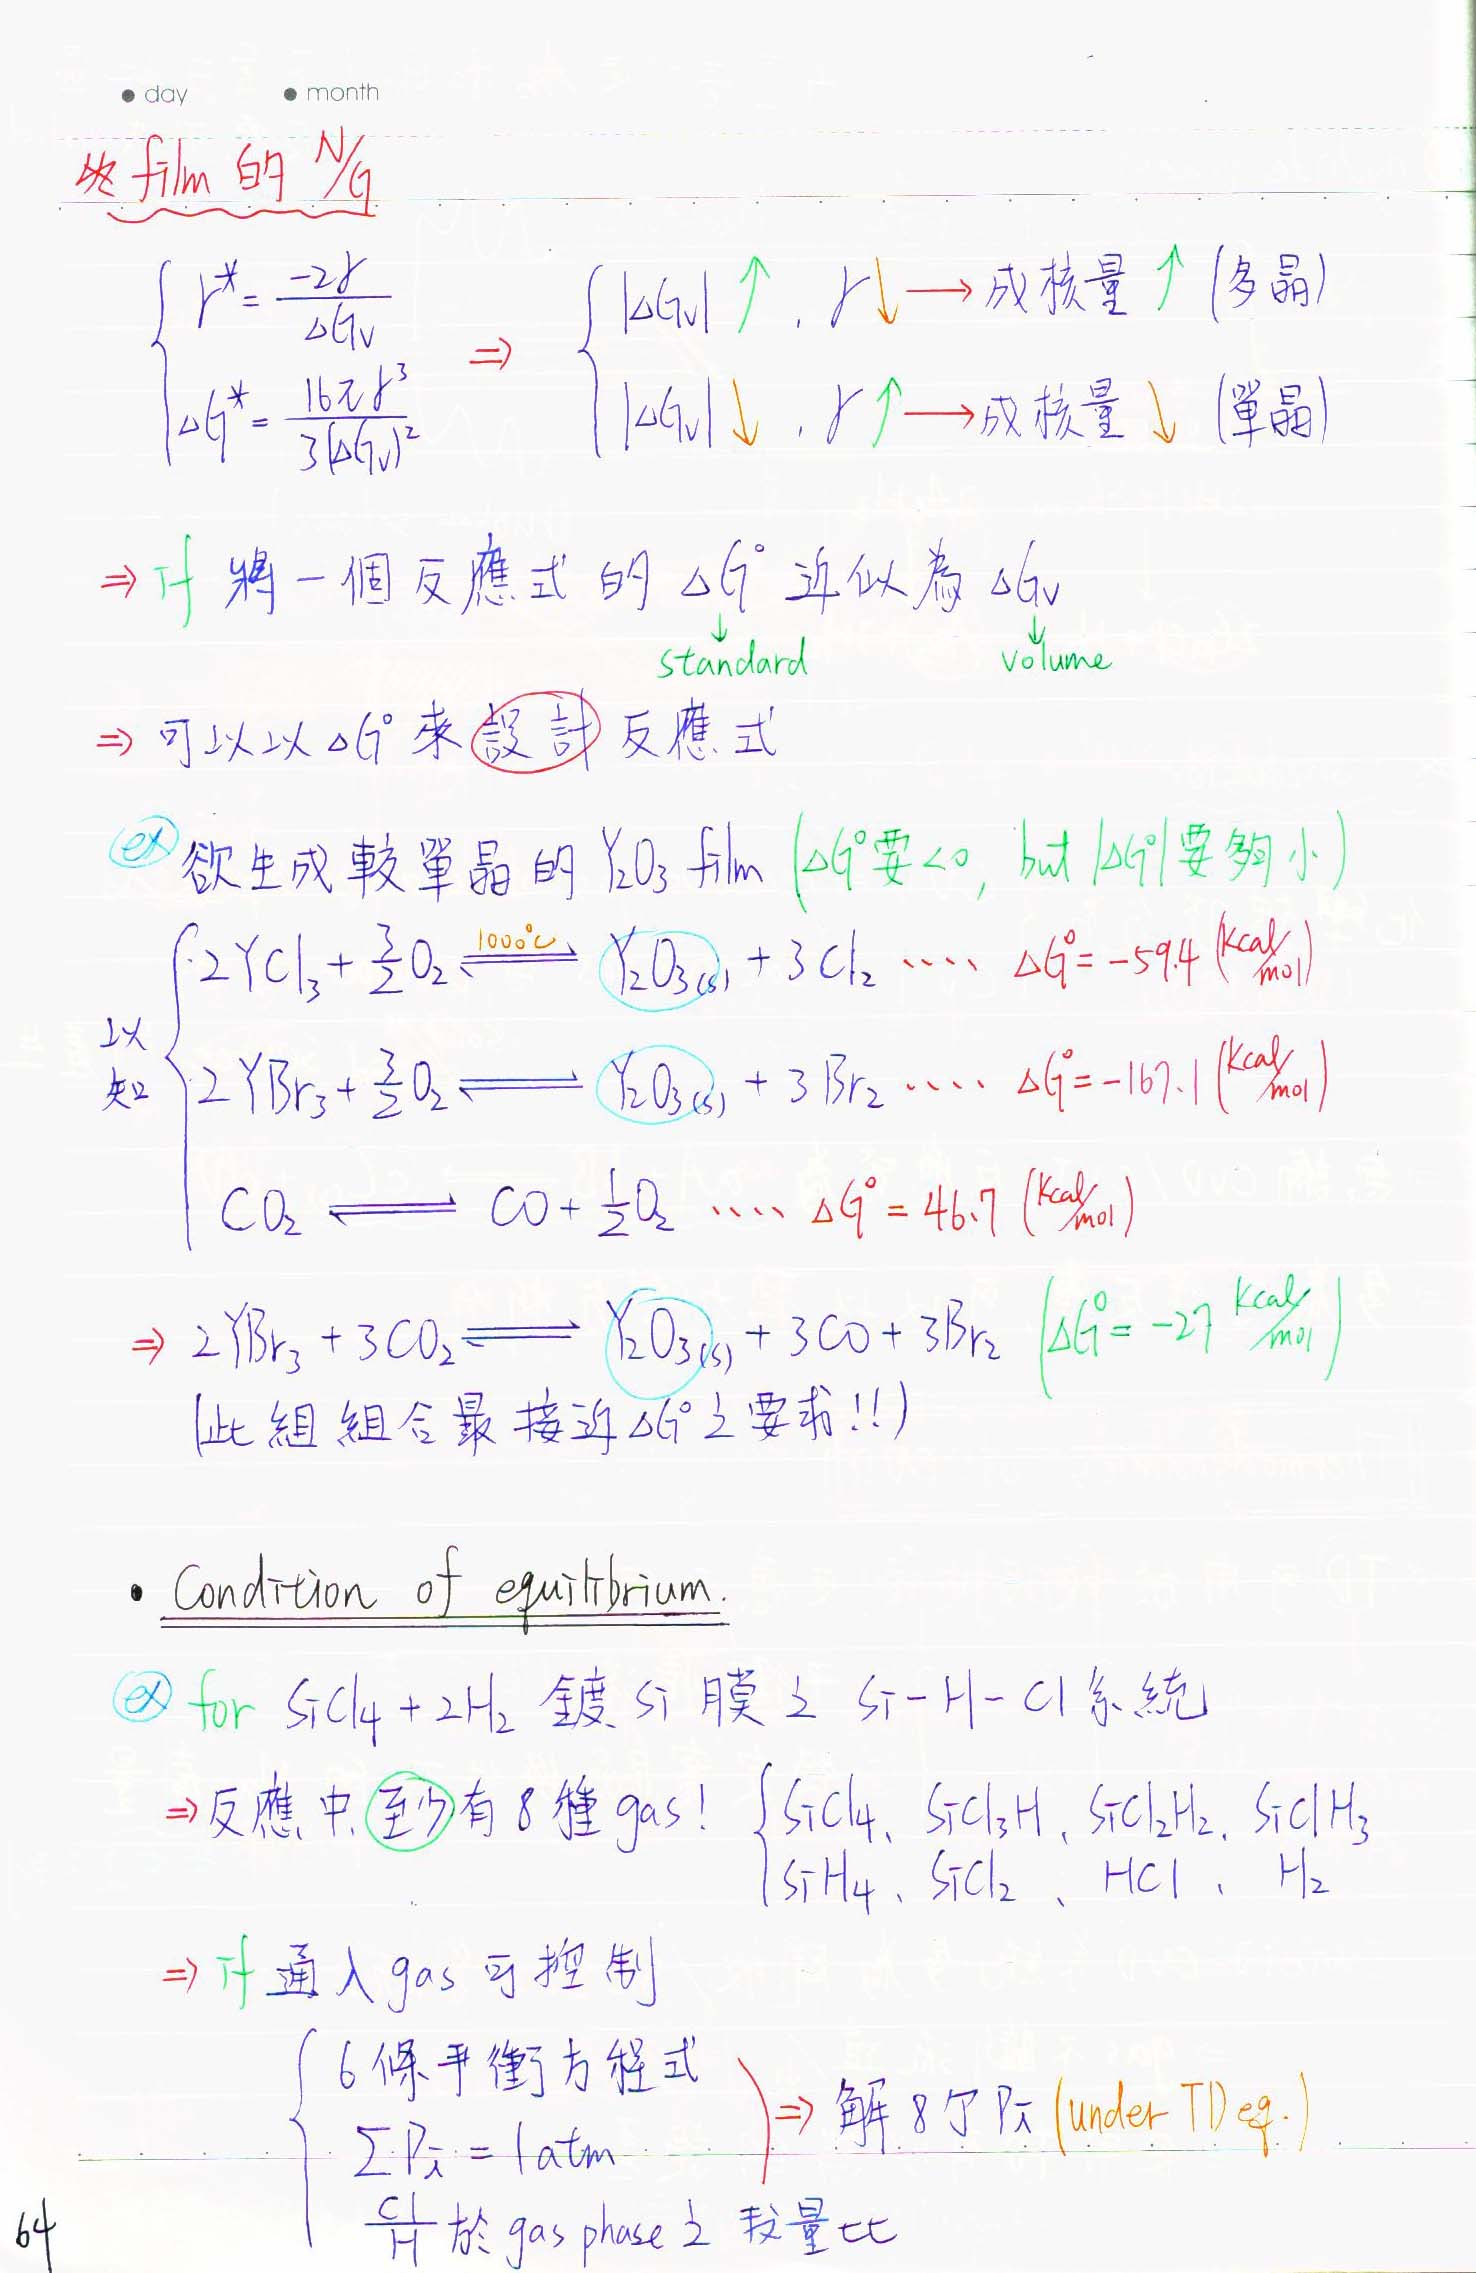 ● day ● month
從 film 的 N/G
r* = -2γ/ΔGv ⇒ |ΔGv| ↑ , γ ↓ → 成核量 ↑ (多晶)
ΔG* = 16πγ³/3(ΔGv)² |ΔGv| ↓ , γ ↑ → 成核量 ↓ (單晶)
⇒ if 將一個反應式的 ΔG° 近似為 ΔGv
↓ standard ↓ volume
⇒ 可以以 ΔG° 來設計反應式
ex 欲生成較單晶的 Y₂O₃ film (ΔG° 要 <0, but |ΔG°| 要夠小)
以知 2YCl₃ + 3/2 O₂ ⇌ 1000°C Y₂O₃(s) + 3Cl₂ ···· ΔG° = -59.4 (kcal/mol)
2YBr₃ + 3/2 O₂ ⇌ Y₂O₃(s) + 3Br₂ ···· ΔG° = -167.1 (kcal/mol)
CO₂ ⇌ CO + 1/2 O₂ ···· ΔG° = 46.7 (kcal/mol)
⇒ 2YBr₃ + 3CO₂ ⇌ Y₂O₃(s) + 3CO + 3Br₂ (ΔG° = -27 kcal/mol)
(此組組合最接近 ΔG° 之要求!!)
• Condition of equilibrium.
ex for SiCl₄ + 2H₂ 鍍 Si 膜之 Si-H-Cl 系統
⇒ 反應中至少有 8 種 gas! SiCl₄、SiCl₃H、SiCl₂H₂、SiClH₃
SiH₄、SiCl₂、HCl、H₂
⇒ if 通入 gas 可控制
6 條平衡方程式
ΣPi = 1 atm ⇒ 解 8 个 Pi (under TD eq.)
Cl/H 於 gas phase 之 莪量比
64